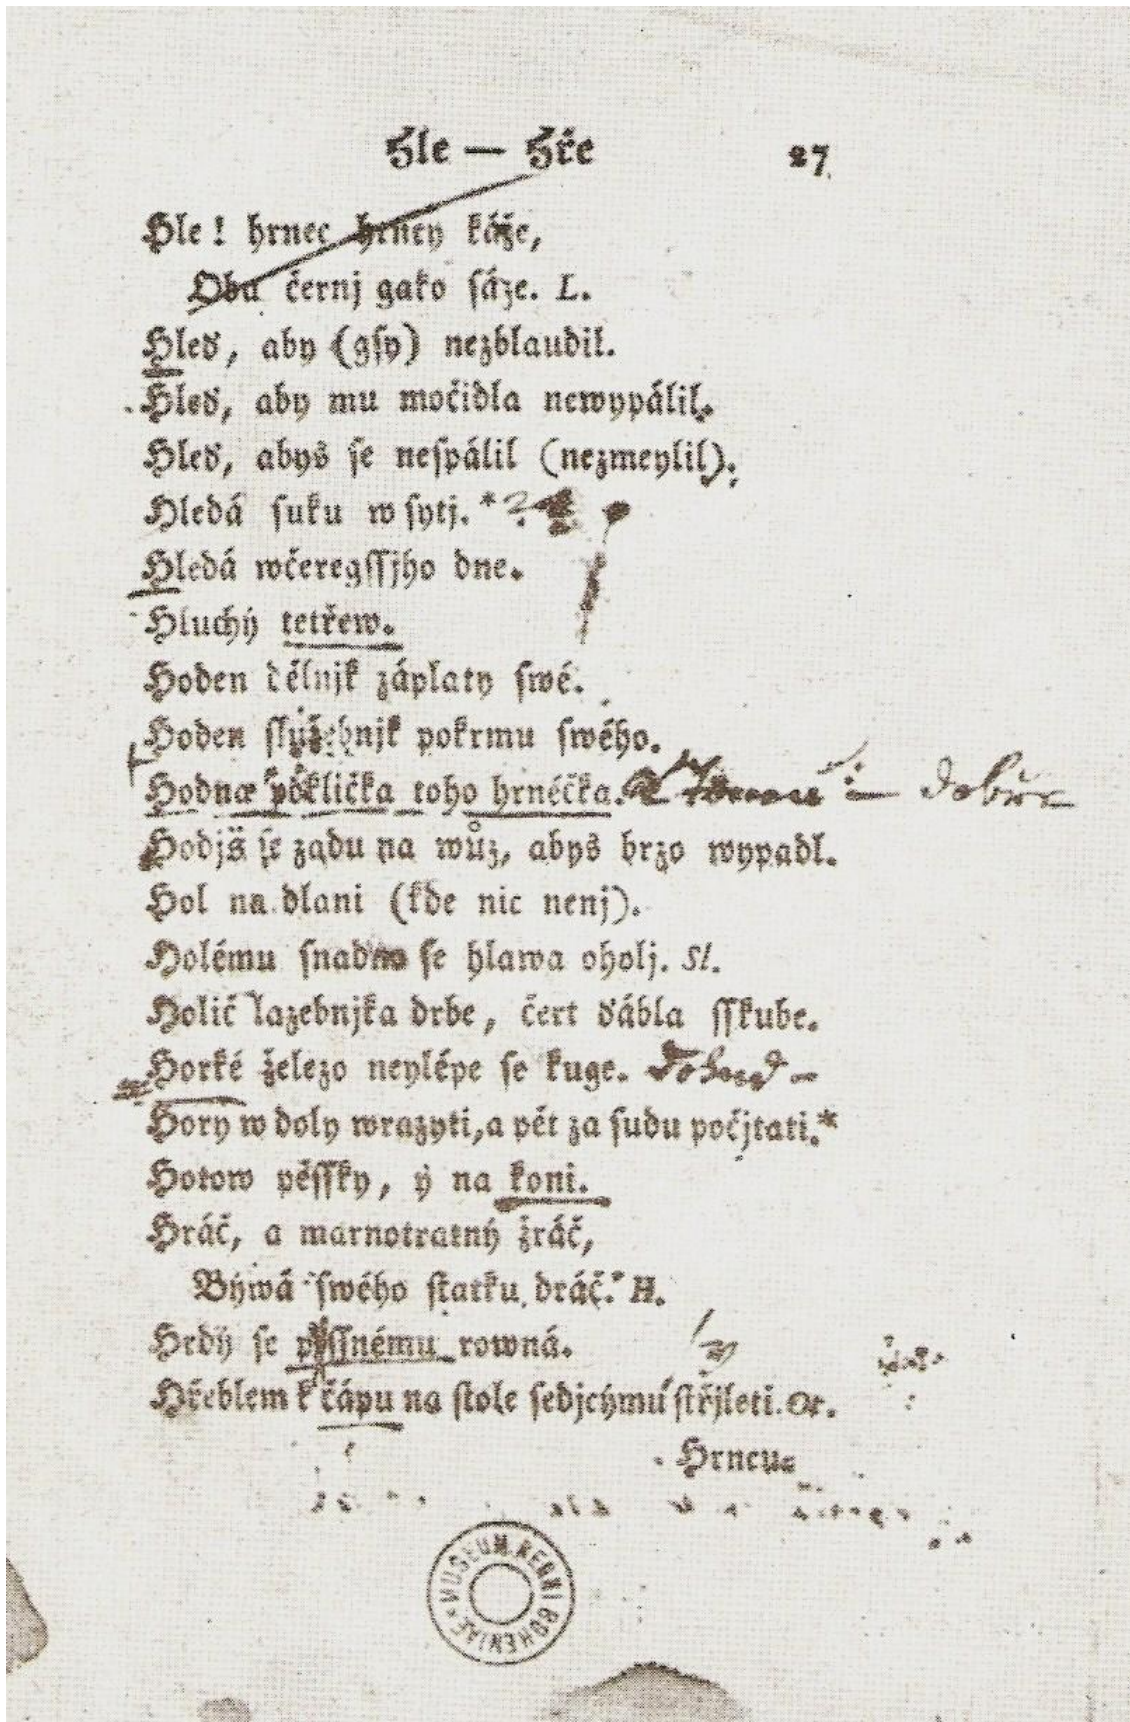 Hle — Hře 27
Hle! hrnec hrncy káže,
Oba černj gako ſáze. L.
Hleď, aby (gſy) nezblaudil.
Hleď, aby mu močidla newypálil.
Hleď, abys ſe neſpálil (nezmeylil).
Hledá ſuku w ſytj. * ?
Hledá wčeregſſjho dne.
Hluchý tetřew.
Hoden dělnjk záplaty ſwé.
Hoden ſlužebnjk pokrmu ſwého.
Hodna poklička toho hrnéčka. — dobře
Hodjš ſe zadu na wůz, abys brzo wypadl.
Hol na dlani (kde nic nenj).
Holému ſnadno ſe hlawa oholj. Sl.
Holič lazebnjka drbe, čert ďábla ſſkube.
Horké železo neylépe ſe kuge.
Hory w doly wrazyti, a pět za ſudu počjtati. *
Hotow pěſſky, ý na koni.
Hráč, a marnotratný žráč,
Býwá ſwého ſtatku dráč. H.
Hrdý ſe pyſſnému rowná.
Hřeblem k čápu na ſtole ſedjcýmu ſtřjleti. Or.
Hrncu⸗
MUSEUM REGNI BOHEMIAE